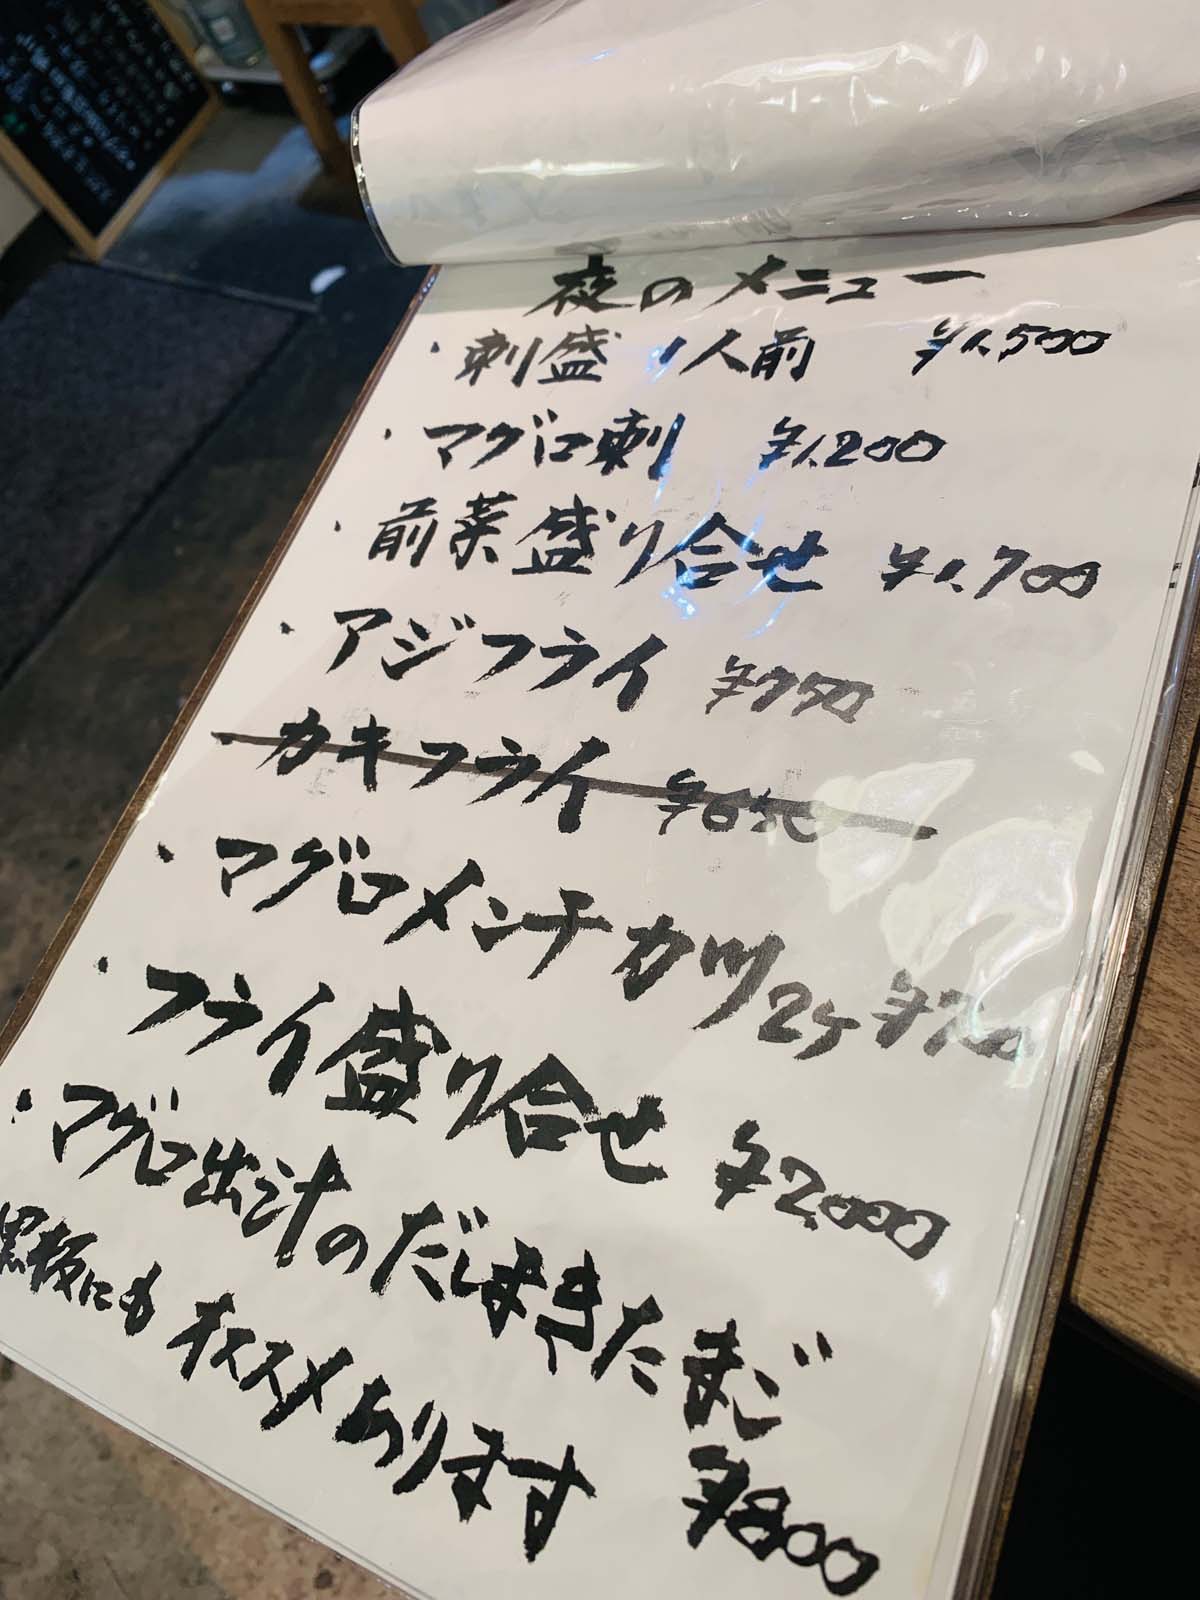 夜のメニュー
・刺盛り1人前 ¥1,500
・マグロ刺 ¥1,200
・前菜盛り合せ ¥1,700
・アジフライ ¥750
・カキフライ ¥650
・マグロメンチカツ2ケ
・フライ盛り合せ ¥2,000
・マグロ出汁のだしまきたまご
¥800
黒板にもオススメあります